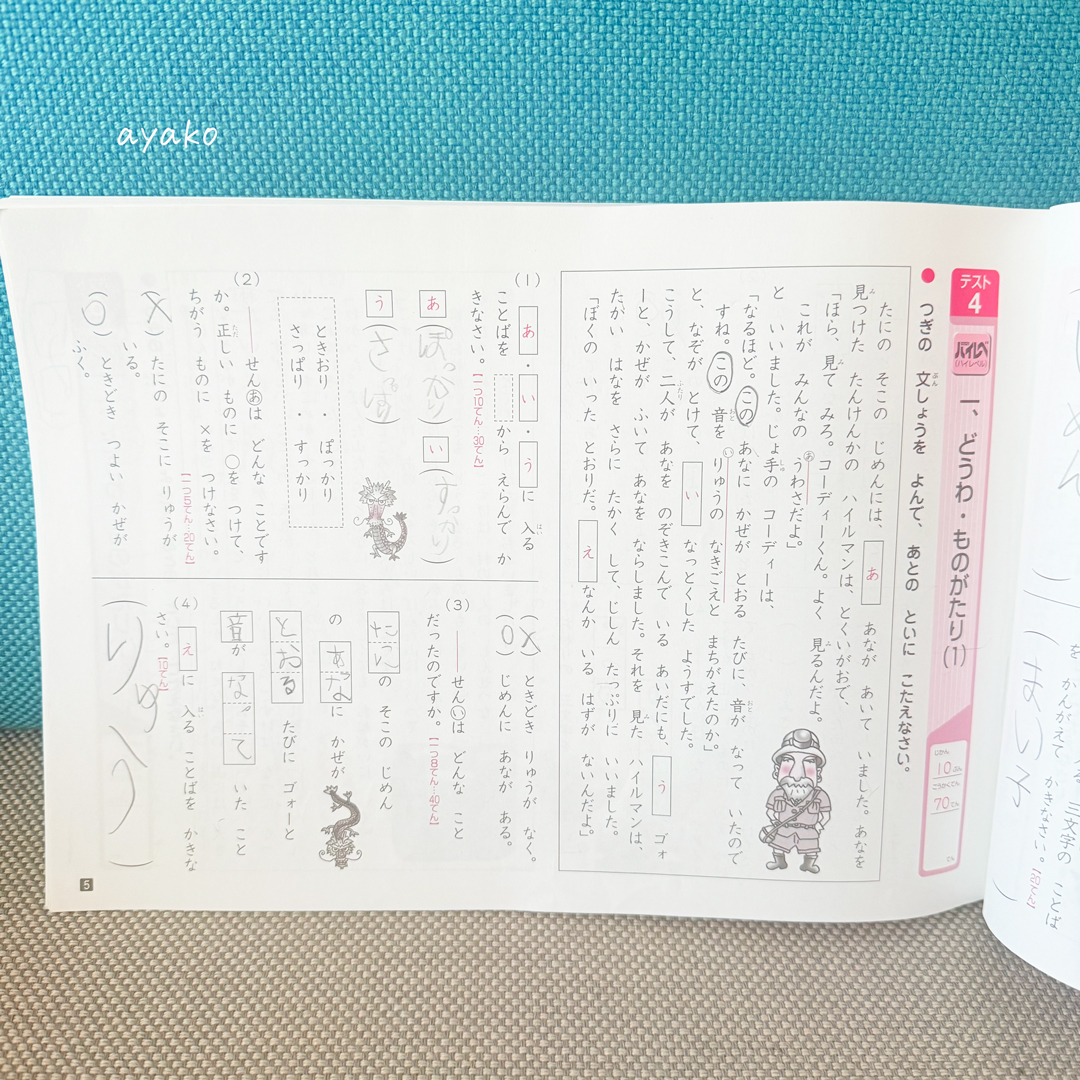 ayako
テスト
4
ハイレベ
(ハイレベル)
一、どうわ・ものがたり(1)
じかん
10ぷん
ごうかくてん
70てん
てん
● つぎの 文しょうを よんで、あとの といに こたえなさい。
たにの そこの じめんには、 あ あなが あいて いました。あなを
見つけた たんけんかの ハイルマンは、とくいがおで、
「ほら、見て みろ。コーディーくん。よく 見るんだよ。
これが みんなの うわさだよ」
と いいました。じょ手の コーディーは、
「なるほど。この あなに かぜが とおる たびに、音が なって いたので
すね。この 音を りゅうの なきごえと まちがえたのか」
と、なぞが とけて、 い なっとくした ようすでした。
こうして、二人が あなを のぞきこんで いる あいだにも、 う ゴォ
ーと、かぜが ふいて あなを ならしました。それを 見た ハイルマンは、
たかい はなを さらに たかく して、じしん たっぷりに いいました。
「ぼくの いった とおりだ。 え なんか いる はずが ないんだよ」
(1) あ・い・うに 入る
ことばを から えらんで か
きなさい。【一つ10てん…30てん】
あ(ぽっかり) い(すっかり)
う(さっぱり)
ときおり ・ ぽっかり
さっぱり ・ すっかり
(2) ――せんあは どんな ことです
か。正しい ものに ○を つけて、
ちがう ものに ×を つけなさい。
【一つ5てん…20てん】
(×) たにの そこに りゅうが
いる。
(○) ときどき つよい かぜが
ふく。
(×) ときどき りゅうが なく。
(○) じめんに あなが ある。
(3) ――せんいは どんな こと
だったのですか。【一つ8てん…40てん】
たにの そこの じめん
の あなに かぜが
とおる たびに ゴォーと
音が なって いた こと
(4) えに 入る ことばを かきな
さい。【10てん】
(りゅう)
5
を かんがえて かきなさい。【20てん】
三文字の ことば